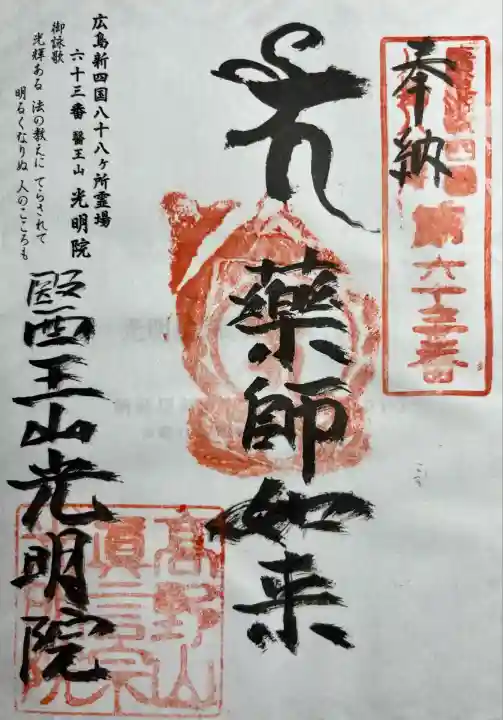 奉納
第六十三番
薬師如来
広島新四国八十八ヶ所霊場
六十三番 醫王山 光明院
御詠歌
光輝ある 法の教えに てらされて
明るくなりぬ 人のこころも
醫王山光明院
高野山
真言宗
光明院